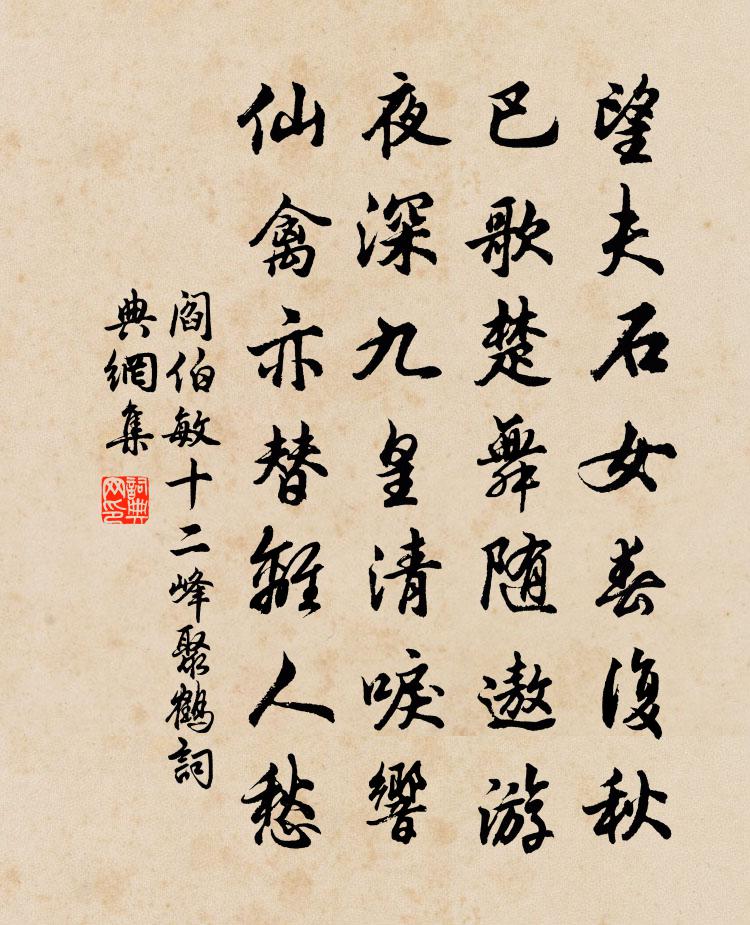 望夫石女春復秋
巴歌楚舞随遨游
夜深九皇清唳響
仙禽亦替離人愁
阎伯敏十二峰聚鶴詞
典網集
詞典
网印